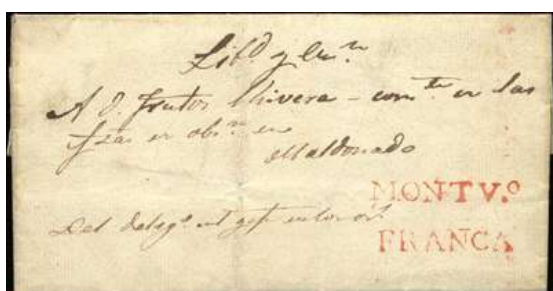 Lib.d y Un.n
A D. Frutos Rivera - com.te en las
fzas en obs.n en
Maldonado
MONTV.º
Del deleg.º
FRANCA